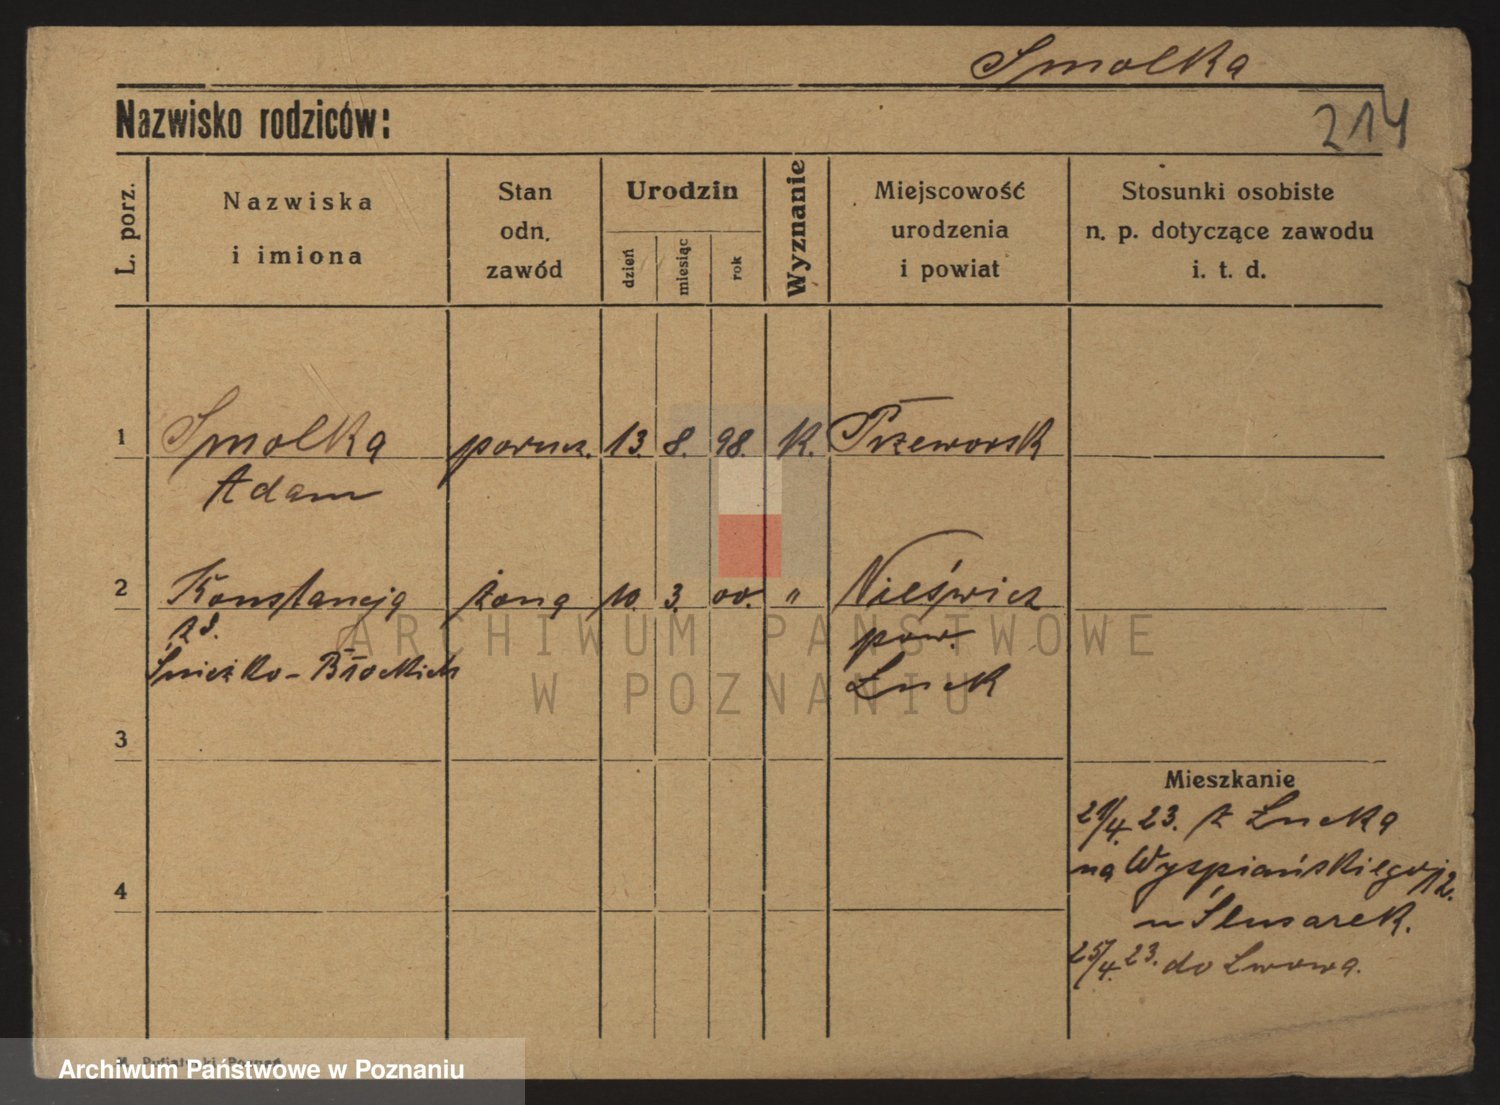 Smolka
Nazwisko rodziców:
214
L. porz.
Nazwiska
i imiona
Stan
odn.
zawód
Urodzin
dzień
miesiąc
rok
Wyznanie
Miejscowość
urodzenia
i powiat
Stosunki osobiste
n. p. dotyczące zawodu
i. t. d.
1 Smolka porucz. 13. 8. 98. K. Przeworsk
Adam
2 Konstancja żona 10. 3. 00. " Nieświcz
zd. pow.
Śnieżko-Błockich Łuck
3
Mieszkanie
21/4. 23. z Łucka
na Wyspiańskiego 12.
u Ślusarek.
25/4. 23. do Lwowa.
4
ARCHIWUM PAŃSTWOWE
W POZNANIU
Archiwum Państwowe w Poznaniu